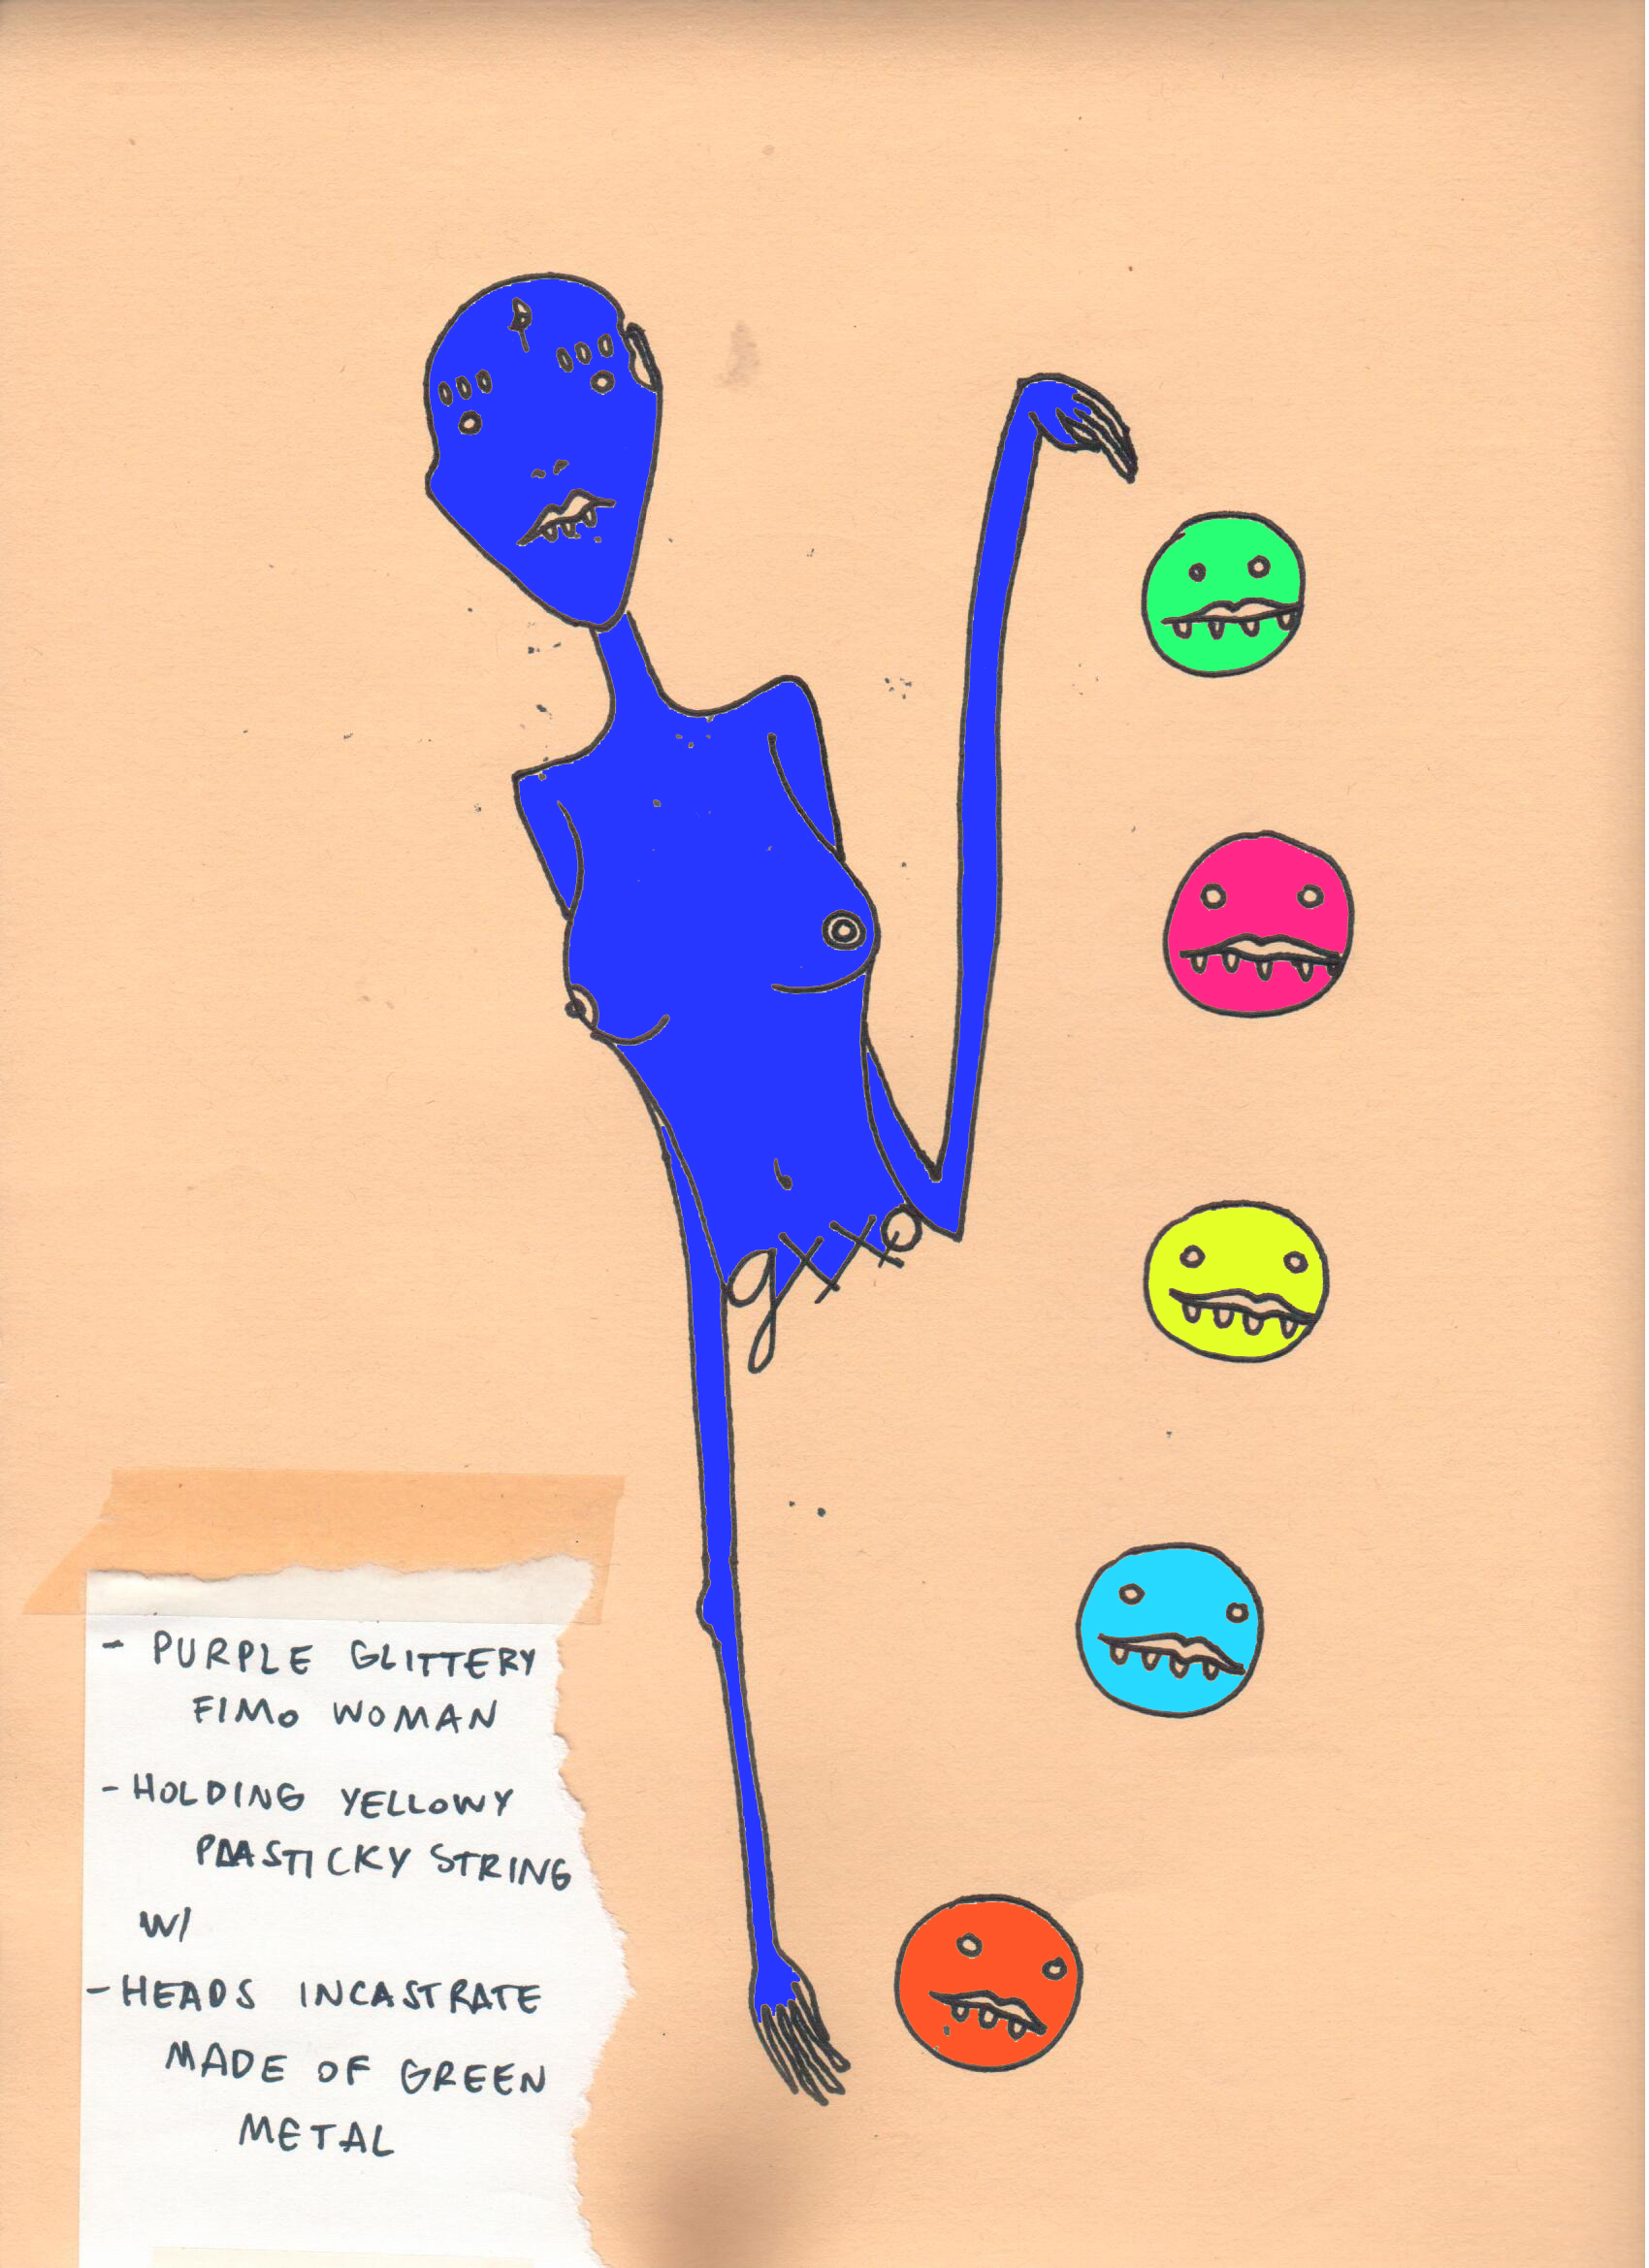 gxxo
- PURPLE GLITTERY
FIMO WOMAN
- HOLDING YELLOWY
PLASTICKY STRING
W/
- HEADS INCASTRATE
MADE OF GREEN
METAL